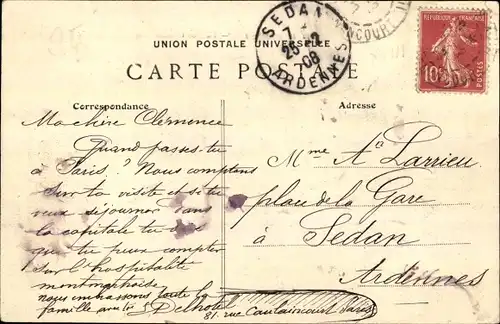 UNION POSTALE UNIVERSELLE
CARTE POSTALE
SEDAN
7
25 12
08
ARDENNES
COURT
RÉPUBLIQUE FRANÇAISE
10
POSTES
Correspondance
Adresse
Ma chère Clémence
Quand passes-tu
à Paris? Nous comptons
sur ta visite et si tu
veux séjourner dans
la capitale tu sais
que tu peux compter
sur l'hospitalité
montmartroise
nous embrassons toute la
famille
Delhotel
81, rue Caulaincourt Paris
Mme Aa Larrieu
place de la Gare
à Sedan
Ardennes